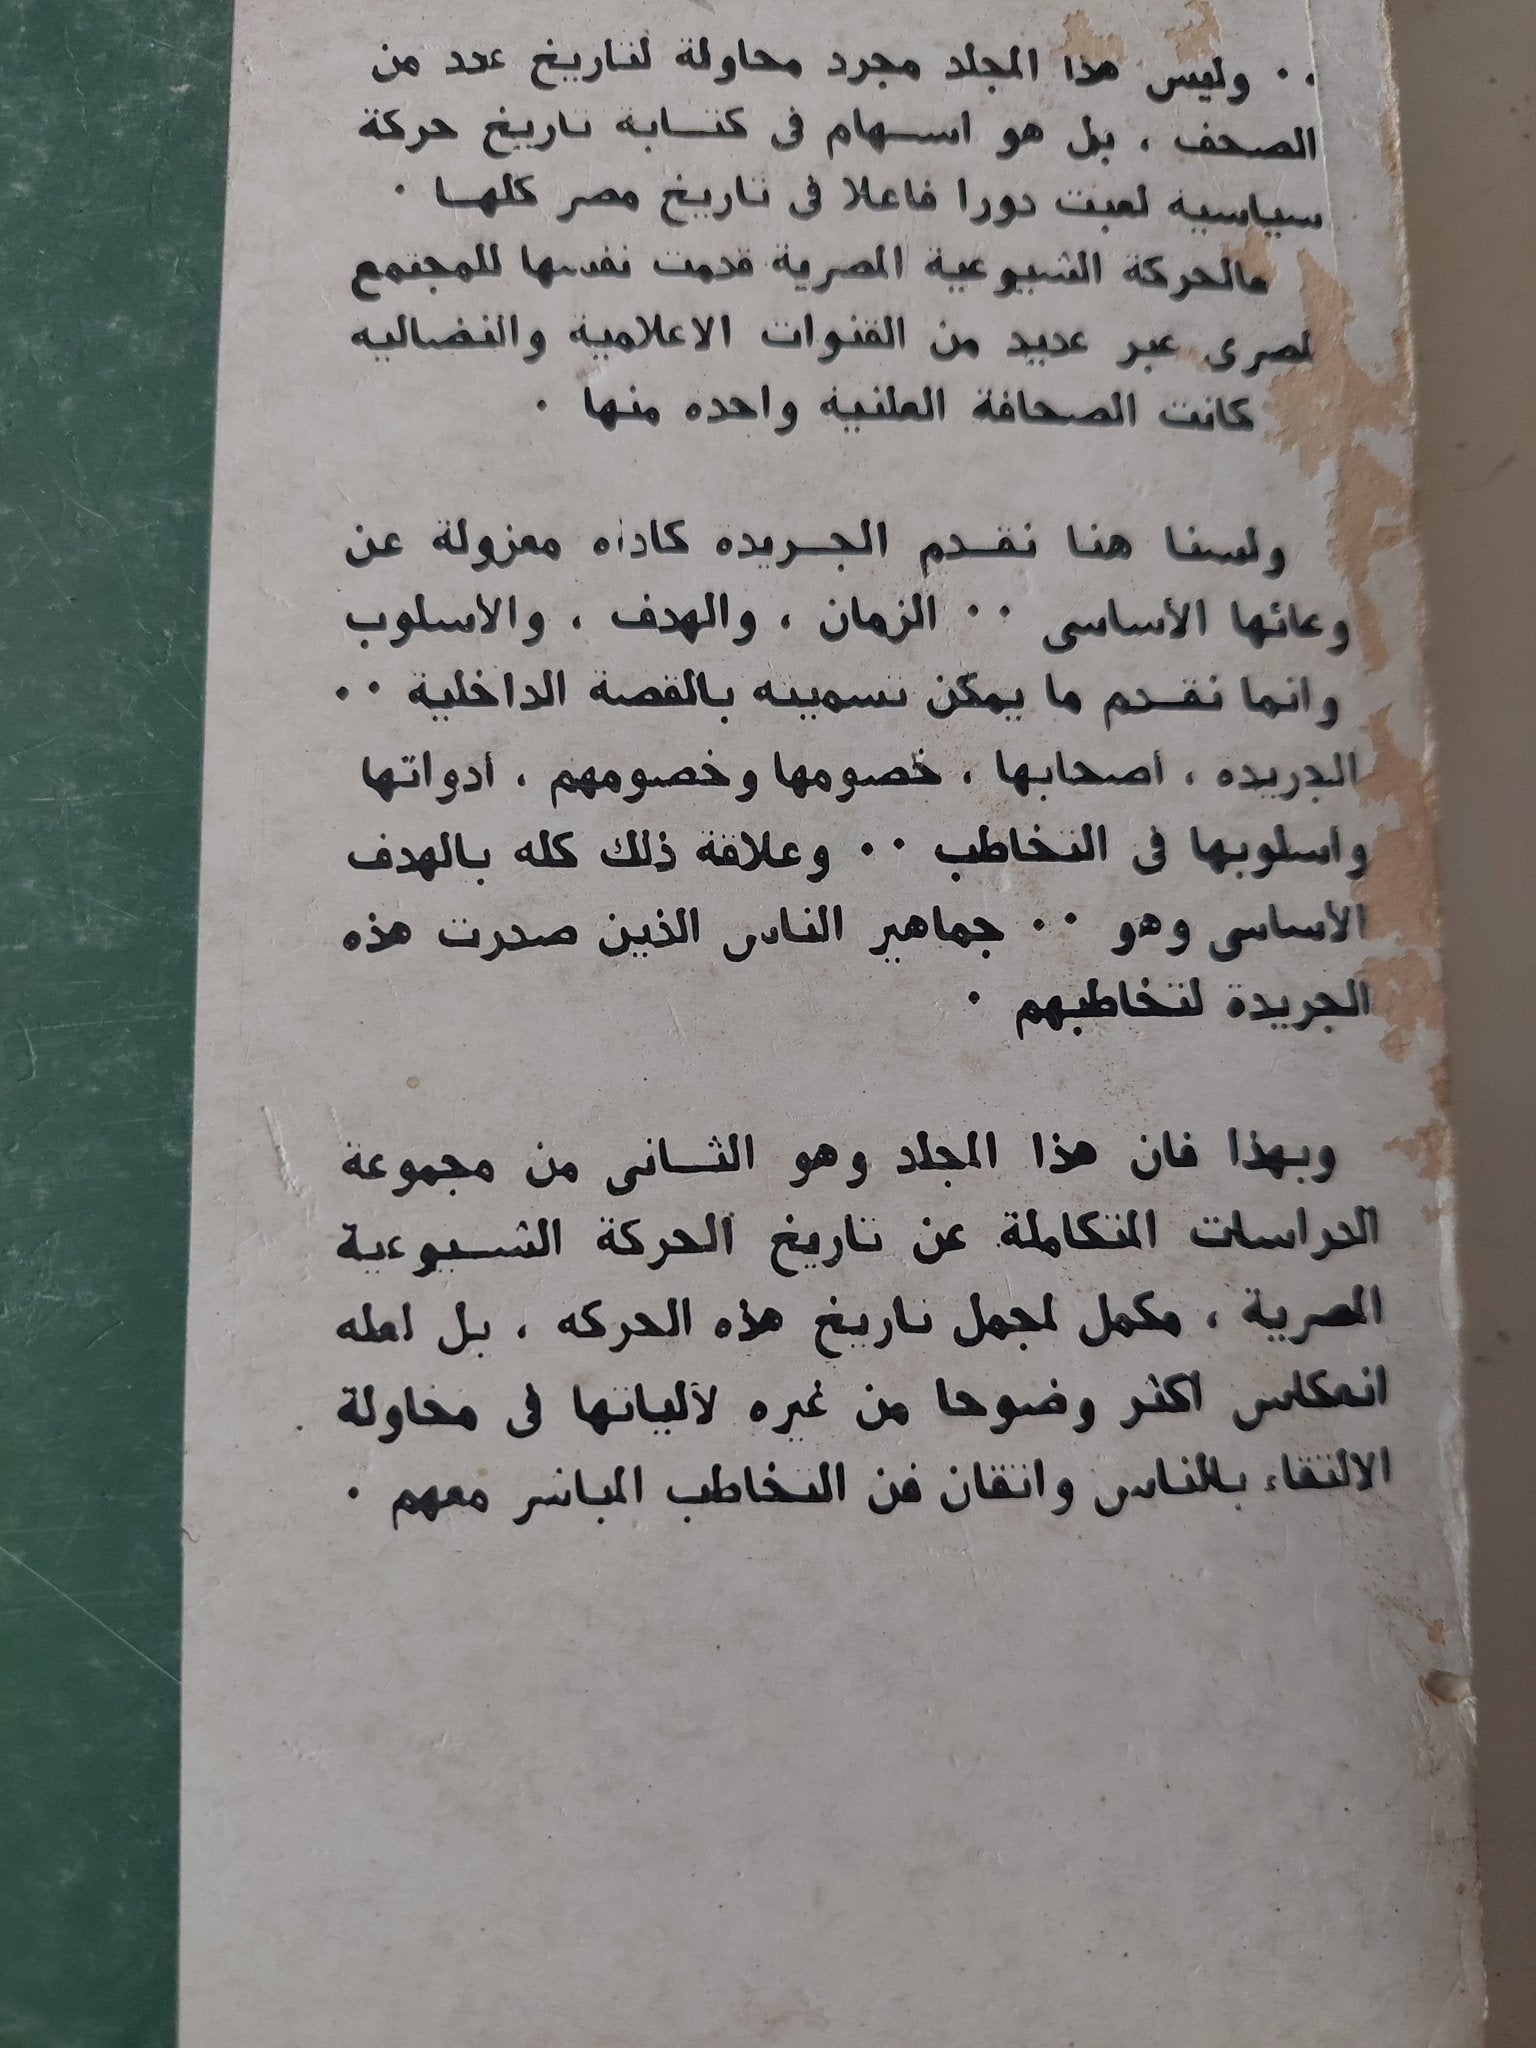 ٠٠ وليس هذا المجلد مجرد محاولة لتاريخ عدد من
الصحف ، بل هو اسهام فى كتابة تاريخ حركة
سياسيه لعبت دورا فاعلا فى تاريخ مصر كلها ٠
فالحركة الشيوعية المصرية قدمت نفسها للمجتمع
لمصرى عبر عديد من القنوات الاعلامية والنضاليه
كانت الصحافة العلنية واحده منها ٠
ولسنا هنا نقدم الجريده كاداه معزولة عن
وعائها الأساسى ٠٠ الزمان ، والهدف ، والأسلوب
وانما نقدم ما يمكن تسميته بالقصة الداخلية ٠٠
الجريده ، أصحابها ، خصومها وخصومهم ، أدواتها
واسلوبها فى التخاطب ٠٠ وعلاقة ذلك كله بالهدف
الأساسى وهو ٠٠ جماهير الناس الذين صدرت هذه
الجريدة لتخاطبهم ٠
وبهذا فان هذا المجلد وهو الثانى من مجموعة
الدراسات المتكاملة عن تاريخ الحركة الشيوعية
المصرية ، مكمل لمجمل تاريخ هذه الحركه ، بل لعله
انعكاس أكثر وضوحا من غيره لآلياتها فى محاولة
الالتقاء بالناس واتقان فن التخاطب المباشر معهم ٠